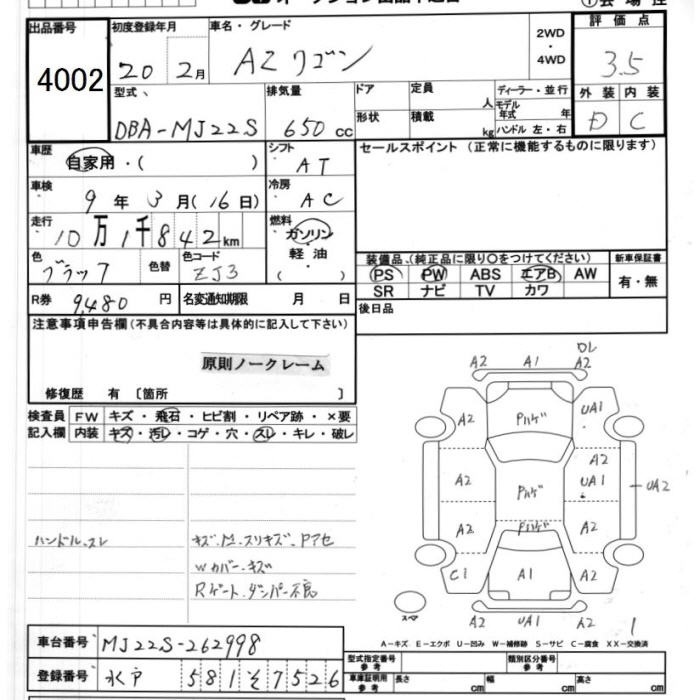 出品番号 初度登録年月 車名・グレード 2WD・4WD 評価点
4002 20 2月 AZワゴン 3.5
型式 排気量 ドア 定員 人 ディーラー・並行 外装 内装
DBA-MJ22S 650cc 形状 積載 kg モデル年式 年 ハンドル 左・右 D C
車歴 自家用・( ) シフト AT セールスポイント (正常に機能するものに限ります)
車検 9年3月(16日) 冷房 AC
走行 10万1千842km 燃料 ガソリン 軽油 ( )
色 ブラック 色替 色コード ZJ3
装備品 (純正品に限り○をつけてください) 新車保証書
PS PW ABS エアB AW 有・無
SR ナビ TV カワ
R券 9,480円 名変通知期限 月 日 後日品
注意事項申告欄 (不具合内容等は具体的に記入して下さい)
原則ノークレーム
修復歴 有 〔箇所 〕
検査員 FW キズ・飛石・ヒビ割・リペア跡・×要
記入欄 内装 キズ・汚レ・コゲ・穴・スレ・キレ・破レ
A2 A1 A2
A2 Pハゲ UA1
A2 A2
Pハゲ UA1 UA2
A2 Pハゲ A2
C1 A1 A2
スペア
A2 UA1 A2 1
ハンドル.スレ
キズ.M.スリキズ.Pアセ
Wカバー.キズ
Rゲート.ダンパー不良
A-キズ E-エクボ U-凹み W-補修跡 S-サビ C-腐食 XX-交換済
車台番号 MJ22S-262998
型式指定番号 参考 類別区分番号 参考
登録番号 水戸 581 そ 7526
車庫証明用 参考 長さ cm 幅 cm 高さ cm